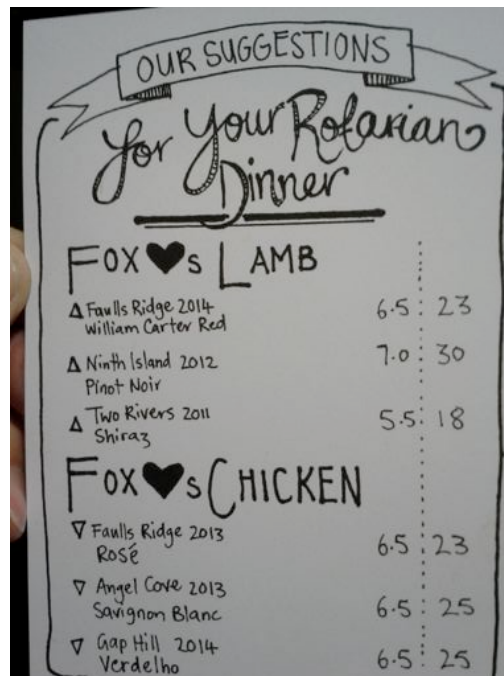 OUR SUGGESTIONS
for Your Rotarian
Dinner
FOX ♥s LAMB
△ Faulls Ridge 2014 6.5 : 23
William Carter Red
△ Ninth Island 2012 7.0 : 30
Pinot Noir
△ Two Rivers 2011 5.5 : 18
Shiraz
FOX ♥s CHICKEN
▽ Faulls Ridge 2013 6.5 : 23
ROSÉ
▽ Angel Cove 2013
Savignon Blanc 6.5 : 25
▽ Gap Hill 2014
Verdelho 6.5 : 25